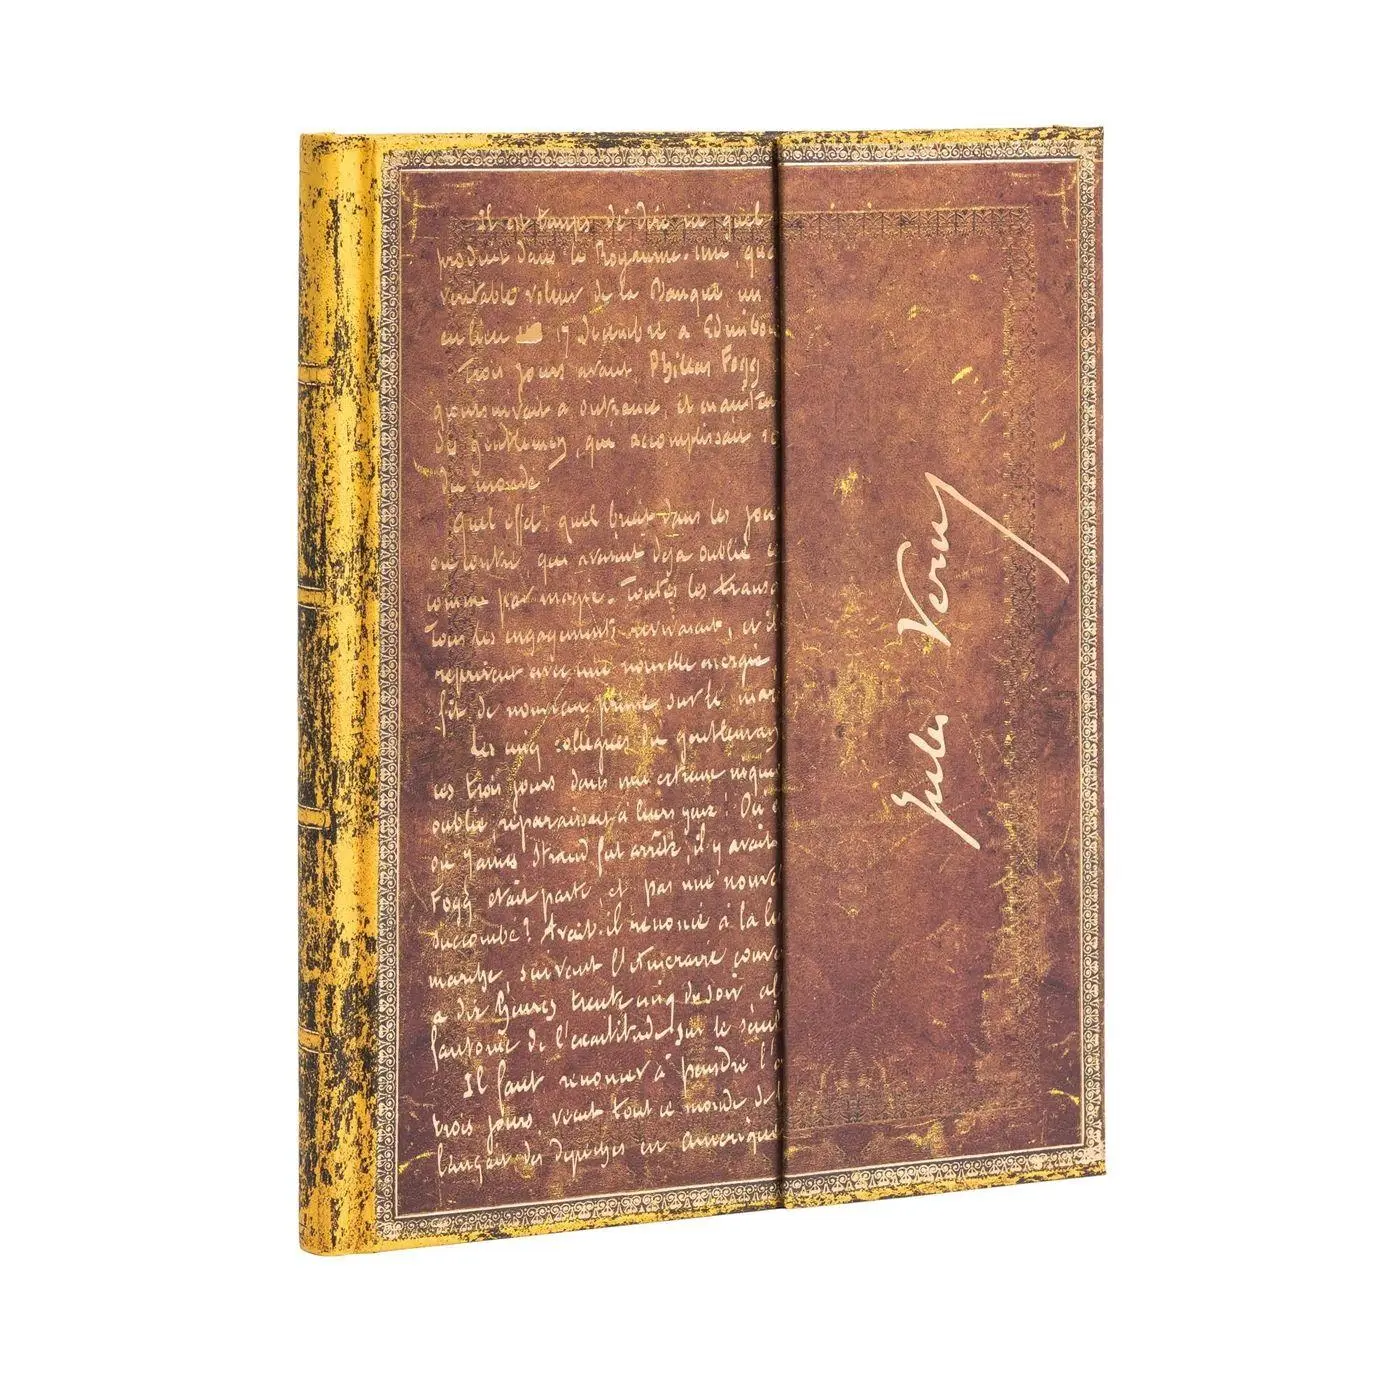 Il est temps de dire ici quel
produit dans le Royaume-Uni, qua
véritable voleur de la Banque, un
eu lieu le 17 décembre à Edimbo
Trois jours avant, Phileas Fogg
poursuivait à outrance, et maint
des gentlemen, qui accomplissait
du monde.
Quel effet! quel bruit dans les jou
ou contre, qui avaient déjà oublié c
comme par magie. Toutes les transa
Tous les engagements revivaient, et il
reprirent avec une nouvelle énergie
fit de nouveau prime sur le mar
Les cinq collègues du gentleman
ces trois jours dans une certaine inquié
oublié, reparaissait à leurs yeux! Où é
où James Strand fut arrêté, il y avait
Fogg était parti, et pas une nouve
succombé? Avait-il renoncé à la lu
marche, suivant l'itinéraire conve
à dix heures trente cinq du soir, al
fantôme de l'exactitude, sur le seuil
Il faut renoncer à peindre l'a
trois jours, vécut tout ce monde de l
lança des dépêches en Amérique
Jules Verne